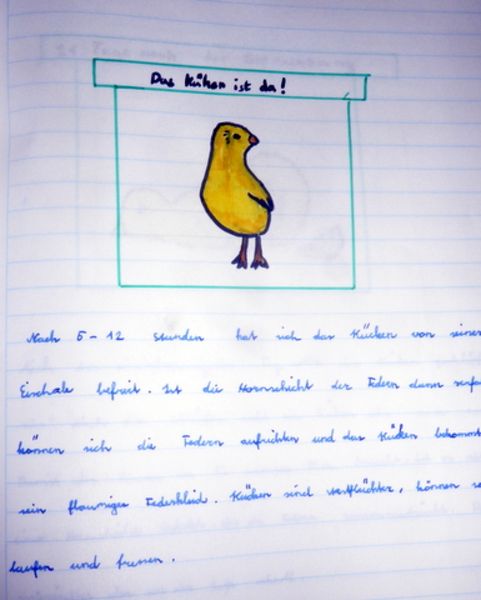 Das Küken ist da!
Nach 5-12 Stunden hat sich das Kücken von seiner
Eischale befreit. Ist die Hornschicht der Federn dann
können sich die Federn aufrichten und das Kücken bekommt
sein flaumiges Federkleid. Kücken sind Nestflüchter, können
laufen und fressen.